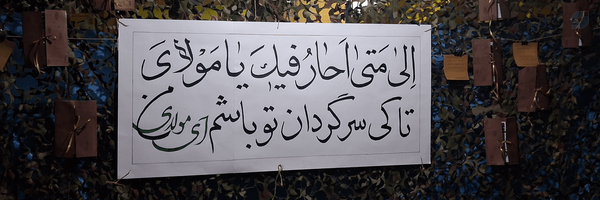 إِلىٰ مَتىٰ اَحٰارُ فيكَ يٰا مَوْلاٰىَ
تا کی سرگردان تو باشم ای مولای من